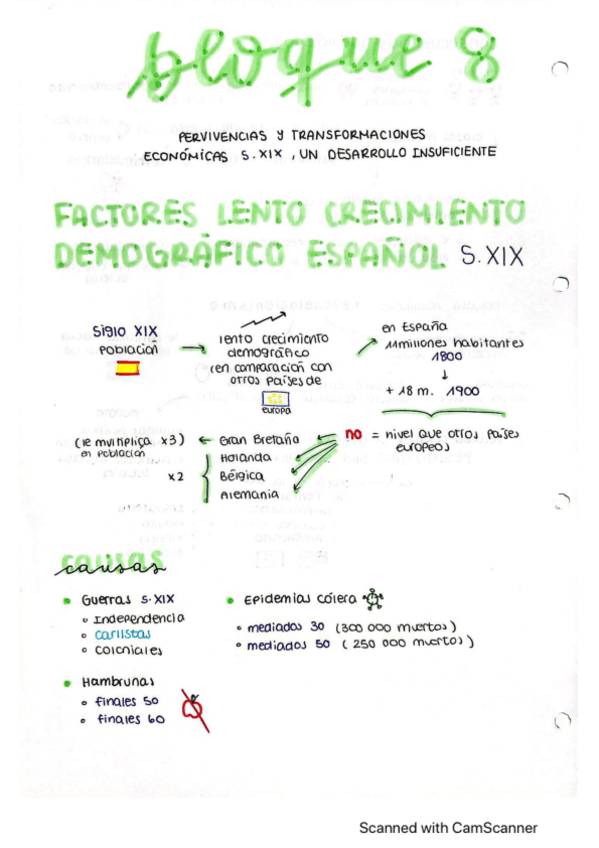 bloque 8
PERVIVENCIAS Y TRANSFORMACIONES
ECONÓMICAS S.XIX, UN DESARROLLO INSUFICIENTE
FACTORES LENTO CRECIMIENTO
DEMOGRÁFICO ESPAÑOL S.XIX
Siglo XIX
Población
lento crecimiento
demográfico
(en comparación con
otros países de
europa
en España
11 millones habitantes
1800
+ 18 m. 1900
(se multiplica x3)
en población
Gran Bretaña
no = nivel que otros países
europeos
x2
Holanda
Bélgica
Alemania
causas
Guerras S.XIX
Independencia
carlistas
coloniales
Epidemias cólera
mediados 30 (300 000 muertos)
mediados 50 (250 000 muertos)
Hambrunas
finales 50
finales 60
Scanned with CamScanner